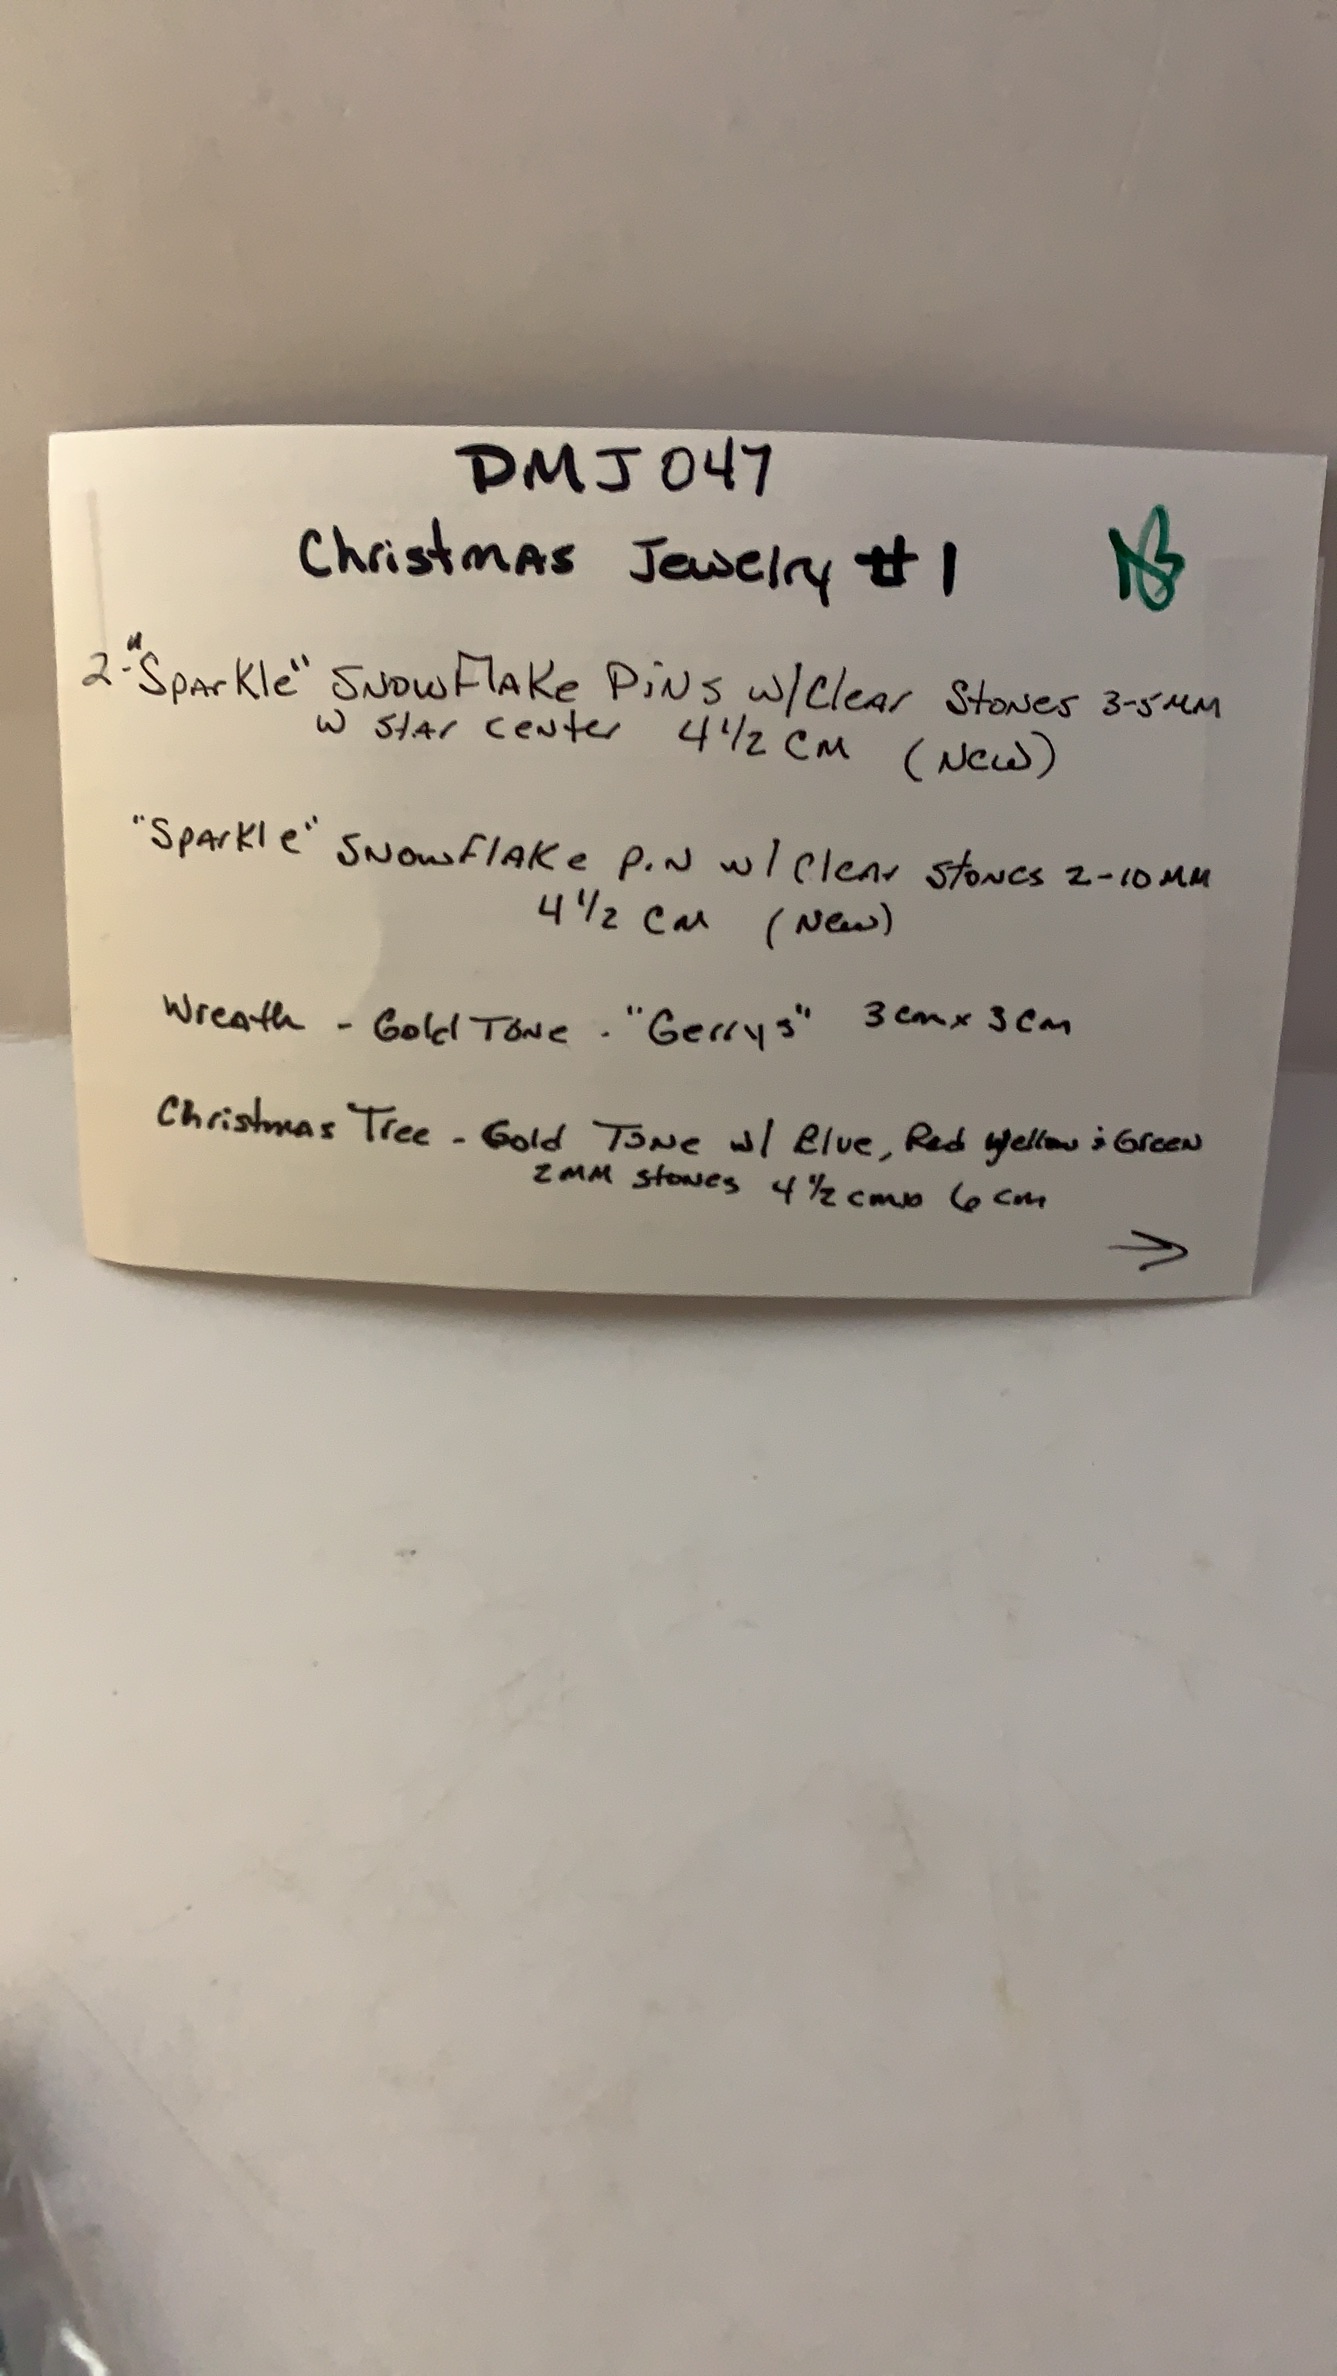 DMJ047
Christmas Jewelry #1
2-"Sparkle" Snowflake Pins w/Clear Stones 3-5MM
w star center 4 1/2 cm (New)
"Sparkle" Snowflake Pin w/ Clear Stones 2-10MM
4 1/2 cm (New)
Wreath - Gold Tone - "Gerrys" 3cm x 3cm
Christmas Tree - Gold Tone w/ Blue, Red Yellow & Green
2MM stones 4 1/2 cm 6 cm
→